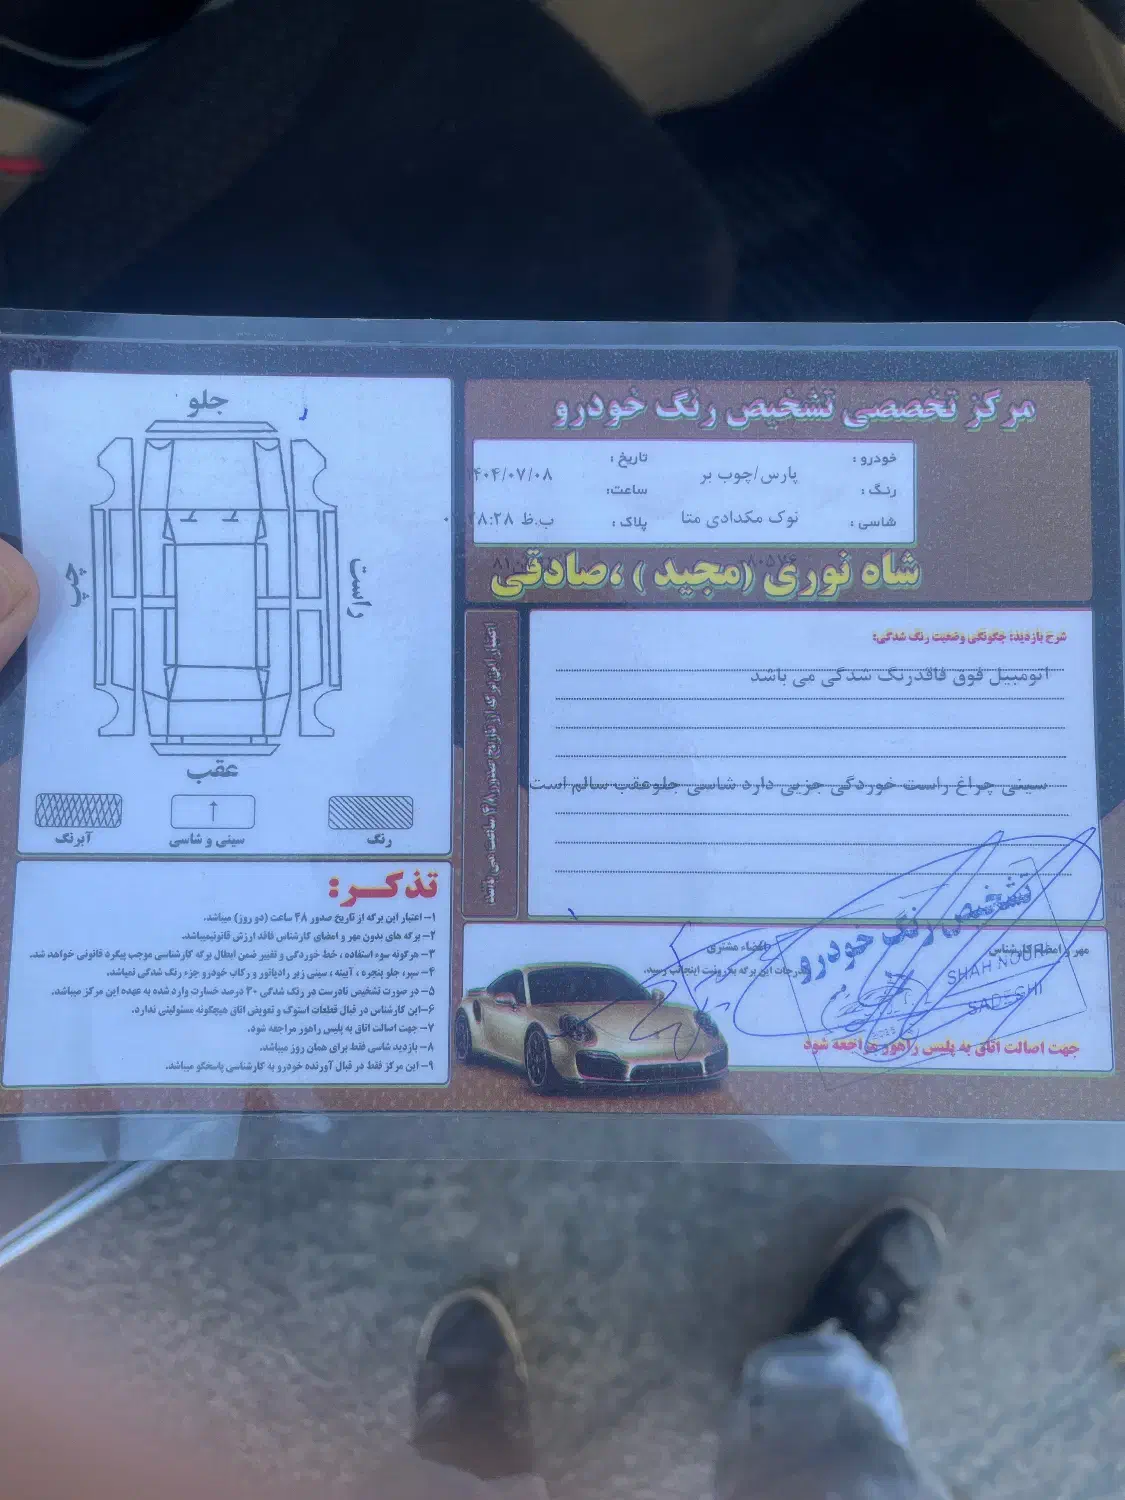 مرکز تخصصی تشخیص رنگ خودرو
خودرو :
پارس/چوب بر
تاریخ :
۱۴۰۴/۰۷/۰۸
رنگ :
ساعت:
شاسی :
نوک مکدادی متا
پلاک :
ب.ظ
شاه نوری (مجید ) ،صادقی
شرح بازدید؛ چگونگی وضعیت رنگ شدگی:
اتومبیل فوق فاقدرنگ شدگی می باشد
سینی چراغ راست خوردگی جزیی دارد شاسی جلوعقب سالم است
اعتبار این برگه از تاریخ صدور ۴۸ ساعت می باشد.
مهر و امضاء کارشناس
امضاء مشتری
مندرجات این برگه به رویت اینجانب رسید.
تشخیص رنگ خودرو
SHAH NOURI
SADEGHI
جهت اصالت اتاق به پلیس راهور مراجعه شود
جلو
چپ
راست
عقب
رنگ
سینی و شاسی
آبرنگ
تذکر:
۱– اعتبار این برگه از تاریخ صدور ۴۸ ساعت (دو روز) میباشد.
۲– برگه های بدون مهر و امضای کارشناس فاقد ارزش قانونیمیباشد.
۳– هرگونه سوء استفاده ، خط خوردگی و تغییر ضمن ابطال برگه کارشناسی موجب پیگرد قانونی خواهد شد.
۴– سپر، جلو پنجره ، آیینه ، سینی زیر رادیاتور و رکاب خودرو جزء رنگ شدگی نمیباشد.
۵– در صورت تشخیص نادرست در رنگ شدگی ۳۰ درصد خسارت وارد شده به عهده این مرکز میباشد.
۶–این کارشناس در قبال قطعات استوک و تعویض اتاق هیچگونه مسئولیتی ندارد.
۷– جهت اصالت اتاق به پلیس راهور مراجعه شود.
۸– بازدید شاسی فقط برای همان روز میباشد.
۹– این مرکز فقط در قبال آورنده خودرو به کارشناسی پاسخگو میباشد.